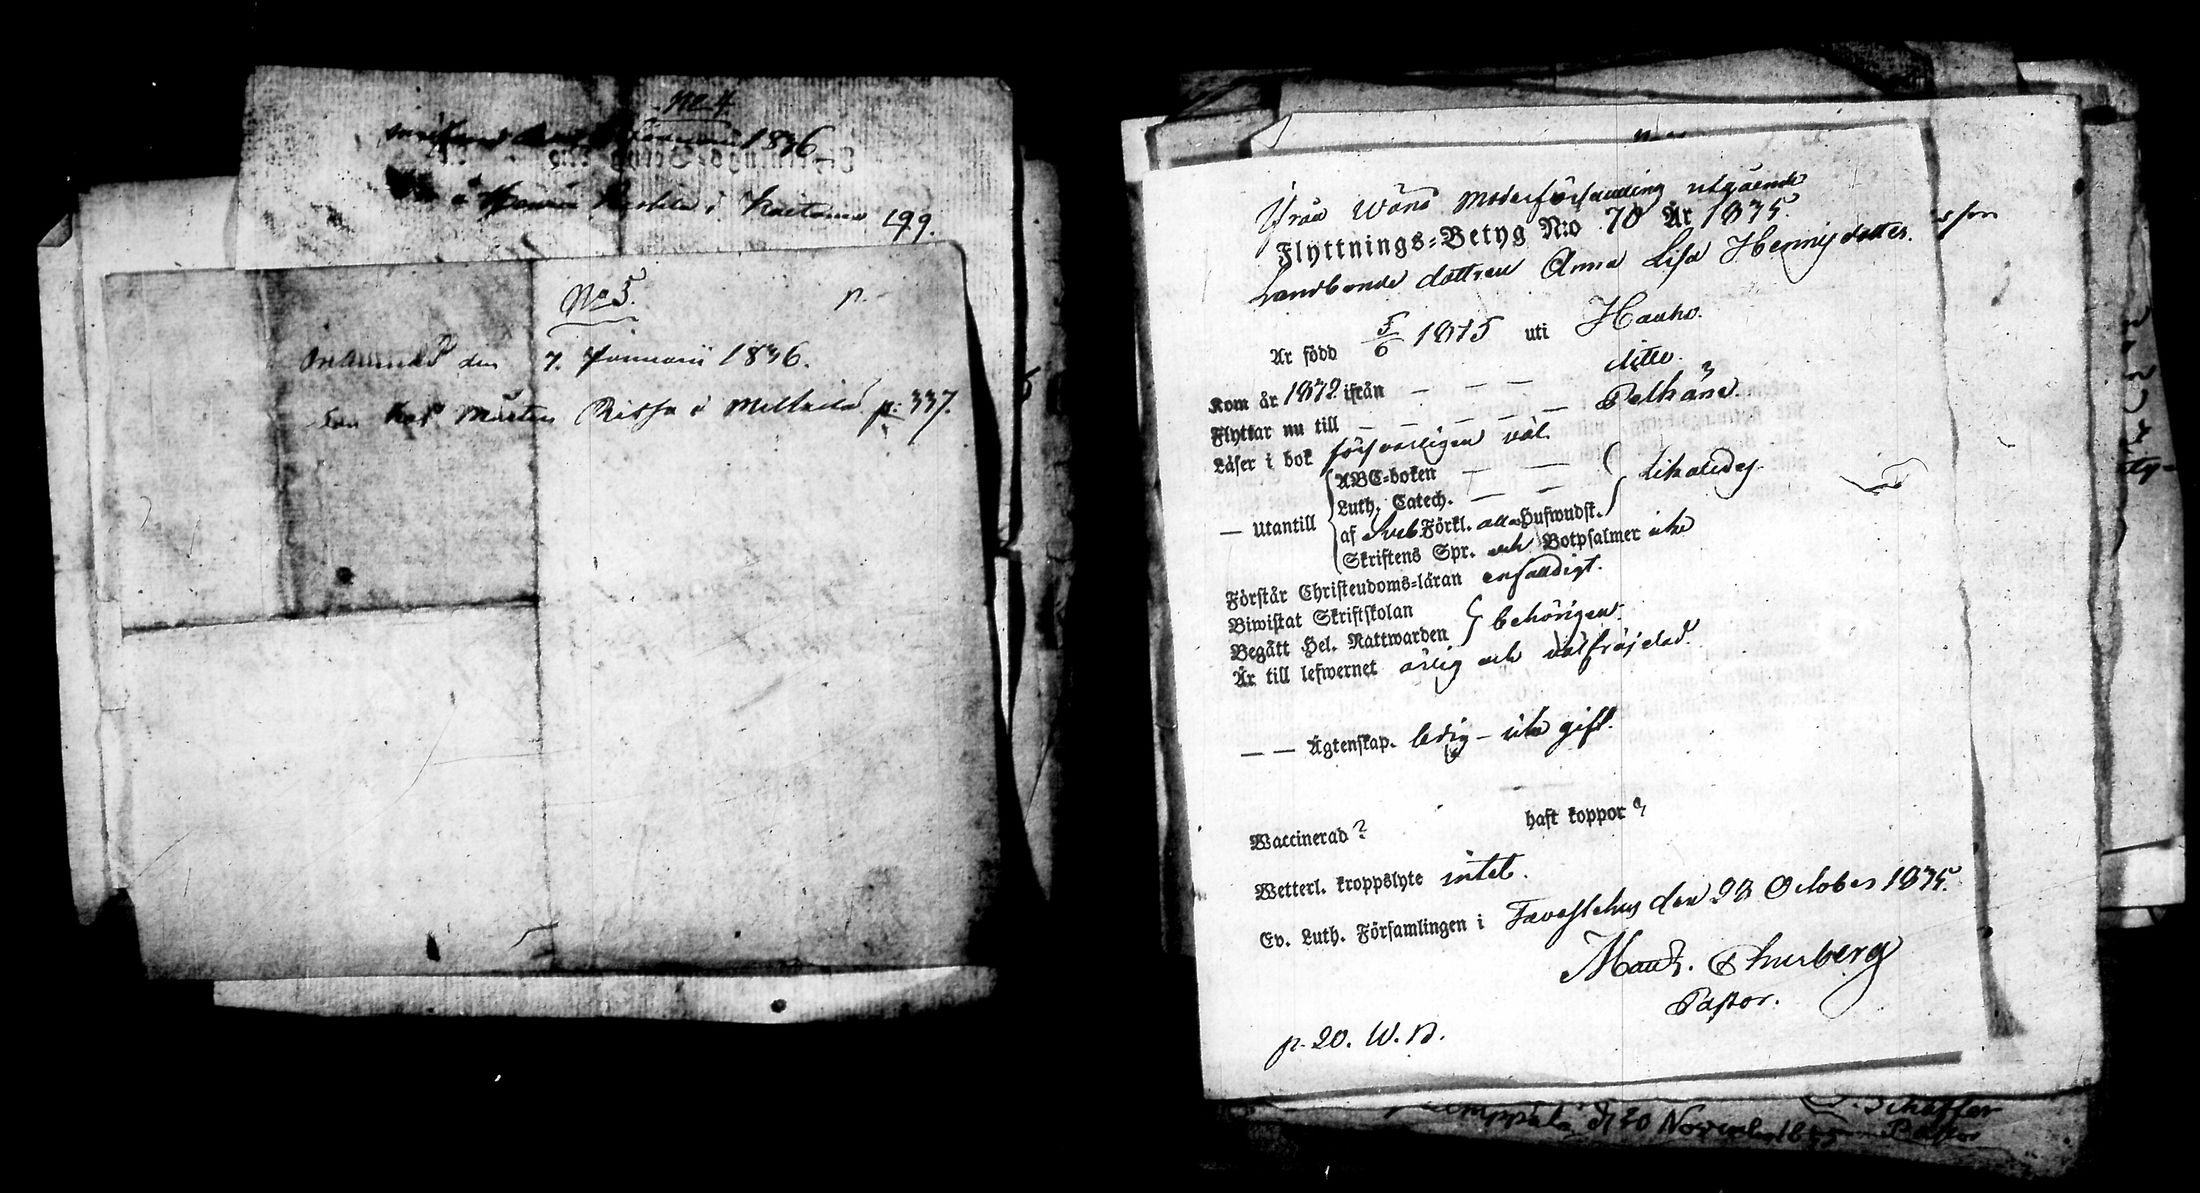 No 4
1836
i 199.
No 5. p.
den 7. Januari 1836.
Mårten i p. 337.
Från Wånå Moderförsamling utgående
Flyttnings-Betyg N:o 70 År 1835.
Landbonde dottren Anna Lisa Henrijsdotter.
Är född 5/6 1815 uti Hauho.
Kom år 1832 ifrån — — — ditto.
Flyttar nu till — — — — Pelkäne.
Läser i bok försvarligen väl.
— Utantill
ABC-boken — —
Luth. Catech. — — likaledes
af Sveb Förkl. alla Hufwudst.
Skriftens Spr. och Botpsalmer icke
Förstår Christendoms-läran enfaldigt.
Biwistat Skriftskolan
Begått Hel. Nattwarden behörigen.
Är till lefwernet ärlig och välfräjdad.
— — Ägtenskap. ledig — icke gift.
Waccinerad? haft koppor?
Wetterl. kroppslyte intet.
Ev. Luth. Församlingen i Tavastehus den 28 October 1835.
Pastor.
p. 20. W. N.
Schaffer
d 20 November Pastor